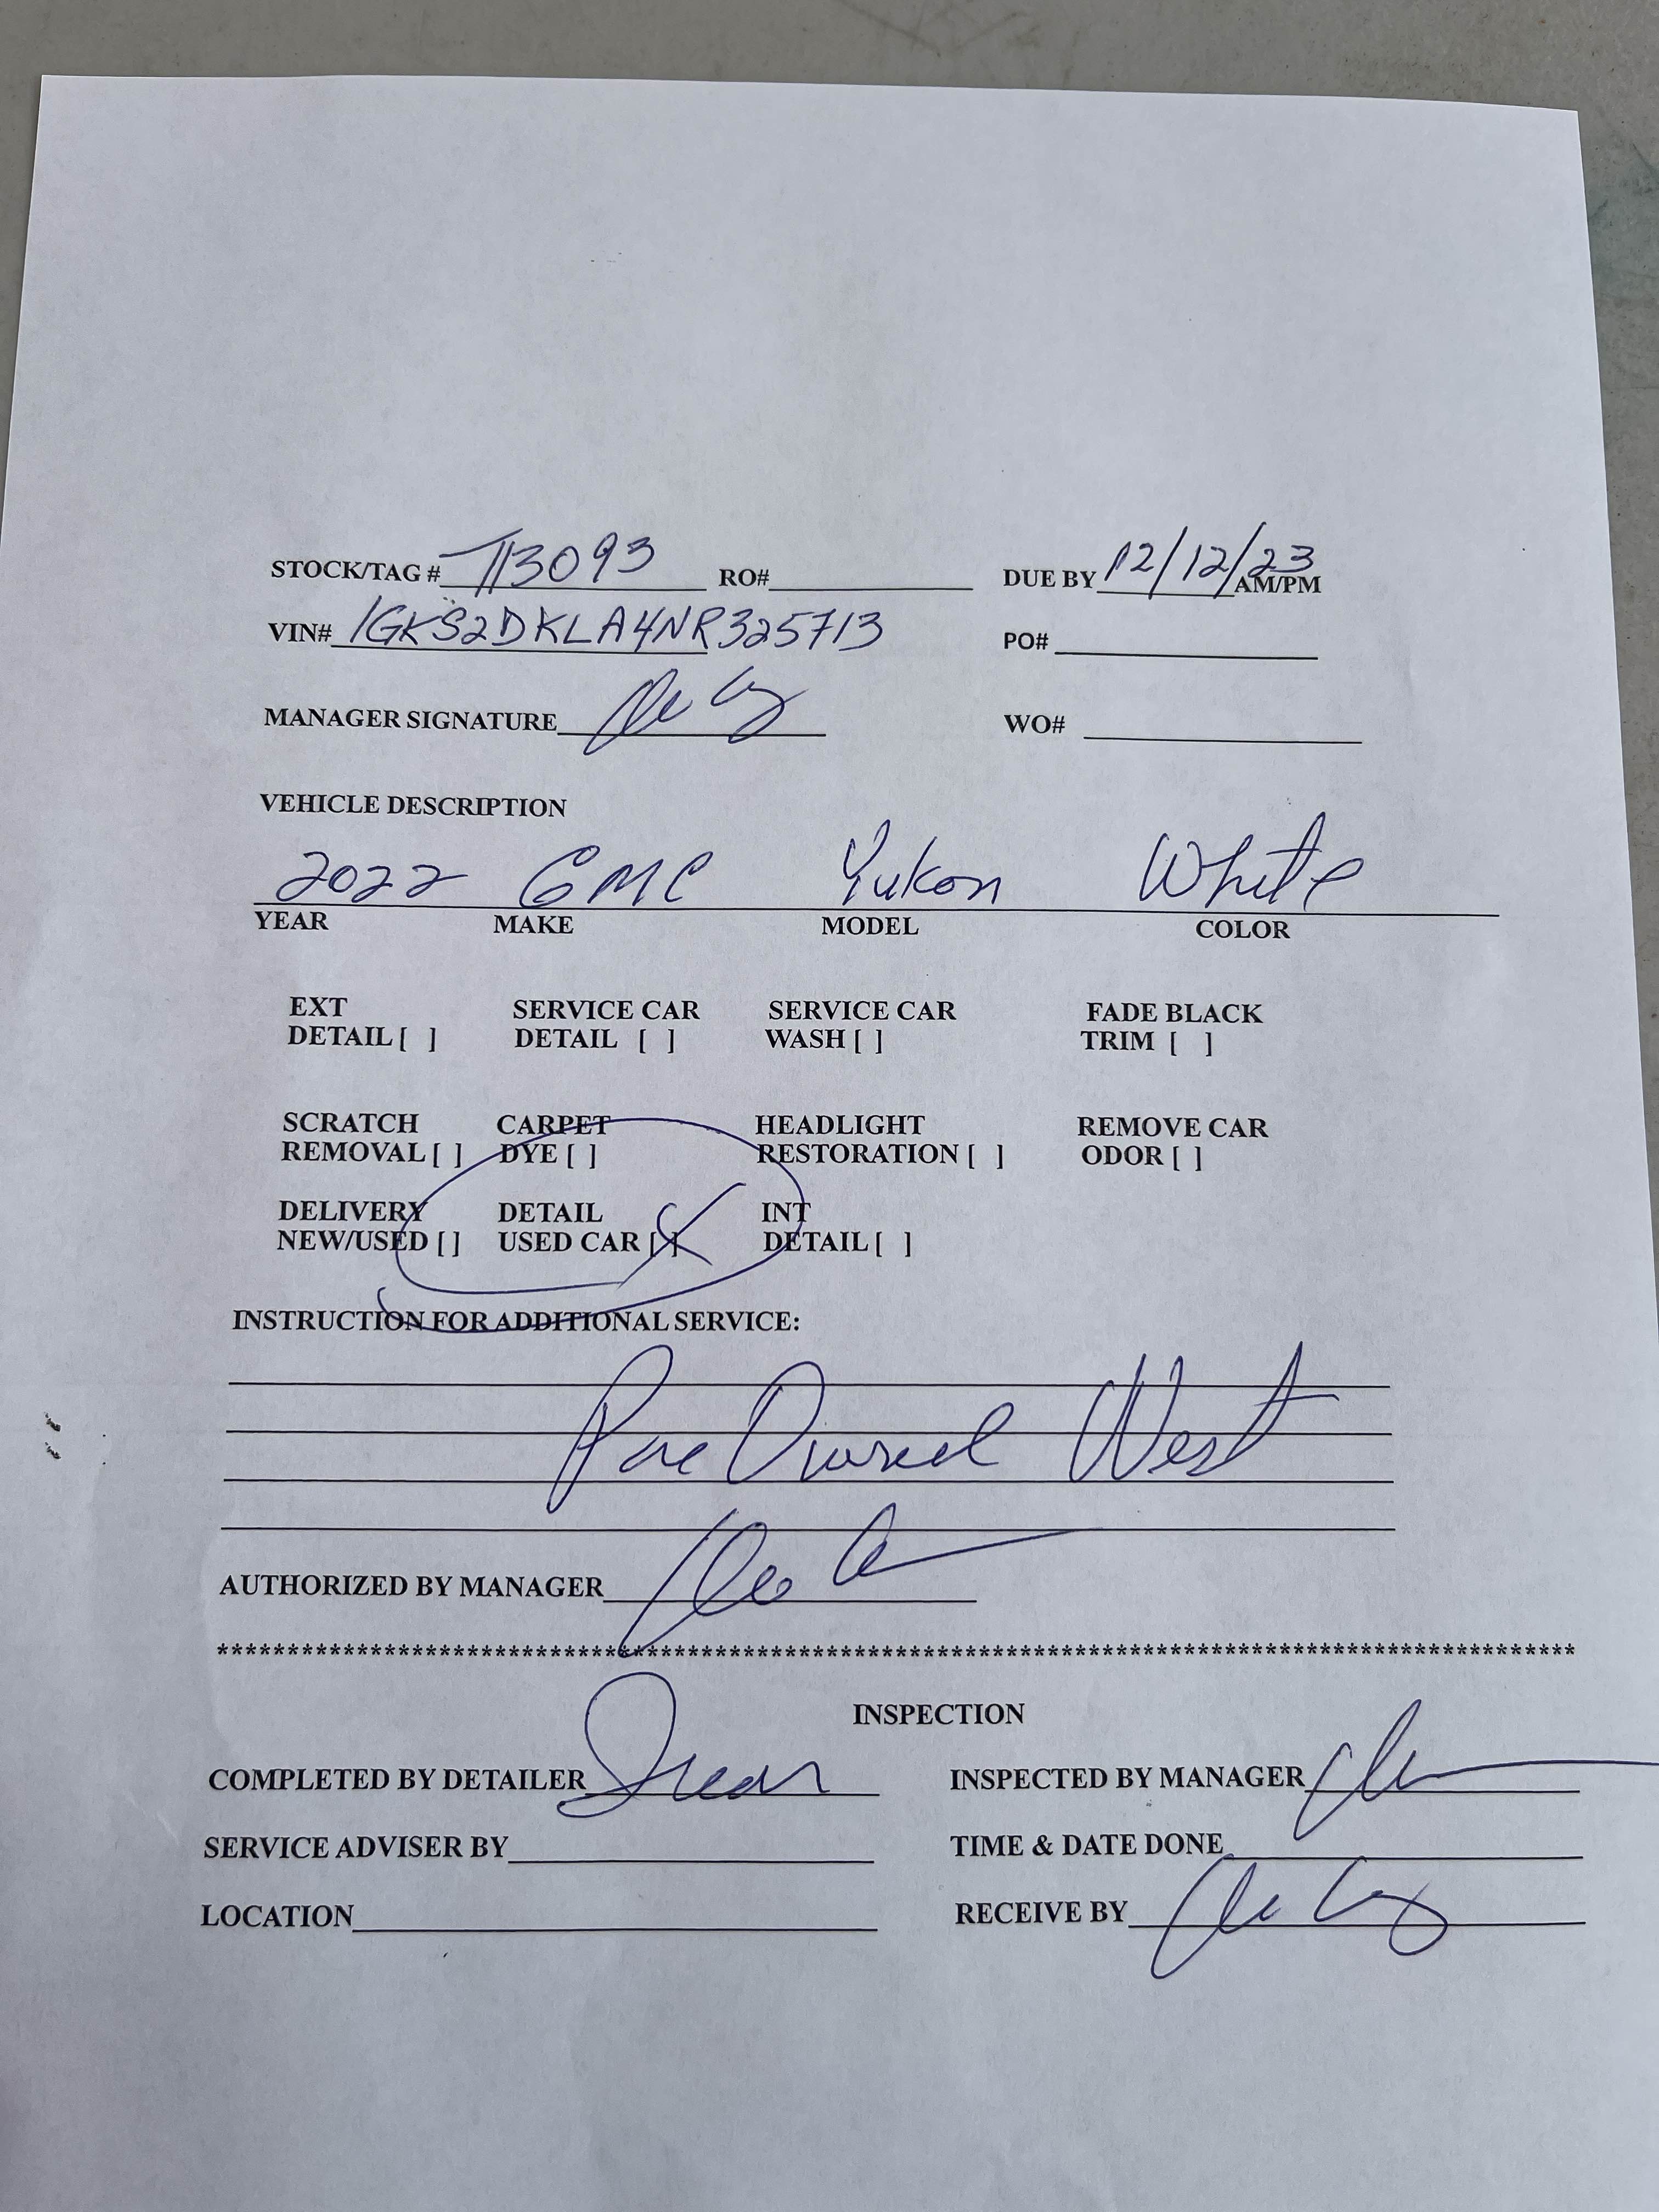 STOCK/TAG # T13093 RO# DUE BY 12/12/23 AM/PM
VIN# 1GKS2DKLA4NR325713 PO#
MANAGER SIGNATURE WO#
VEHICLE DESCRIPTION
2022 GMC Yukon White
YEAR MAKE MODEL COLOR
EXT SERVICE CAR SERVICE CAR FADE BLACK
DETAIL [ ] DETAIL [ ] WASH [ ] TRIM [ ]
SCRATCH CARPET HEADLIGHT REMOVE CAR
REMOVAL [ ] DYE [ ] RESTORATION [ ] ODOR [ ]
DELIVERY DETAIL INT
NEW/USED [ ] USED CAR [X] DETAIL [ ]
INSTRUCTION FOR ADDITIONAL SERVICE:
Pre Owned West
AUTHORIZED BY MANAGER
****************************************************************************************************
INSPECTION
COMPLETED BY DETAILER INSPECTED BY MANAGER
SERVICE ADVISER BY TIME & DATE DONE
LOCATION RECEIVE BY